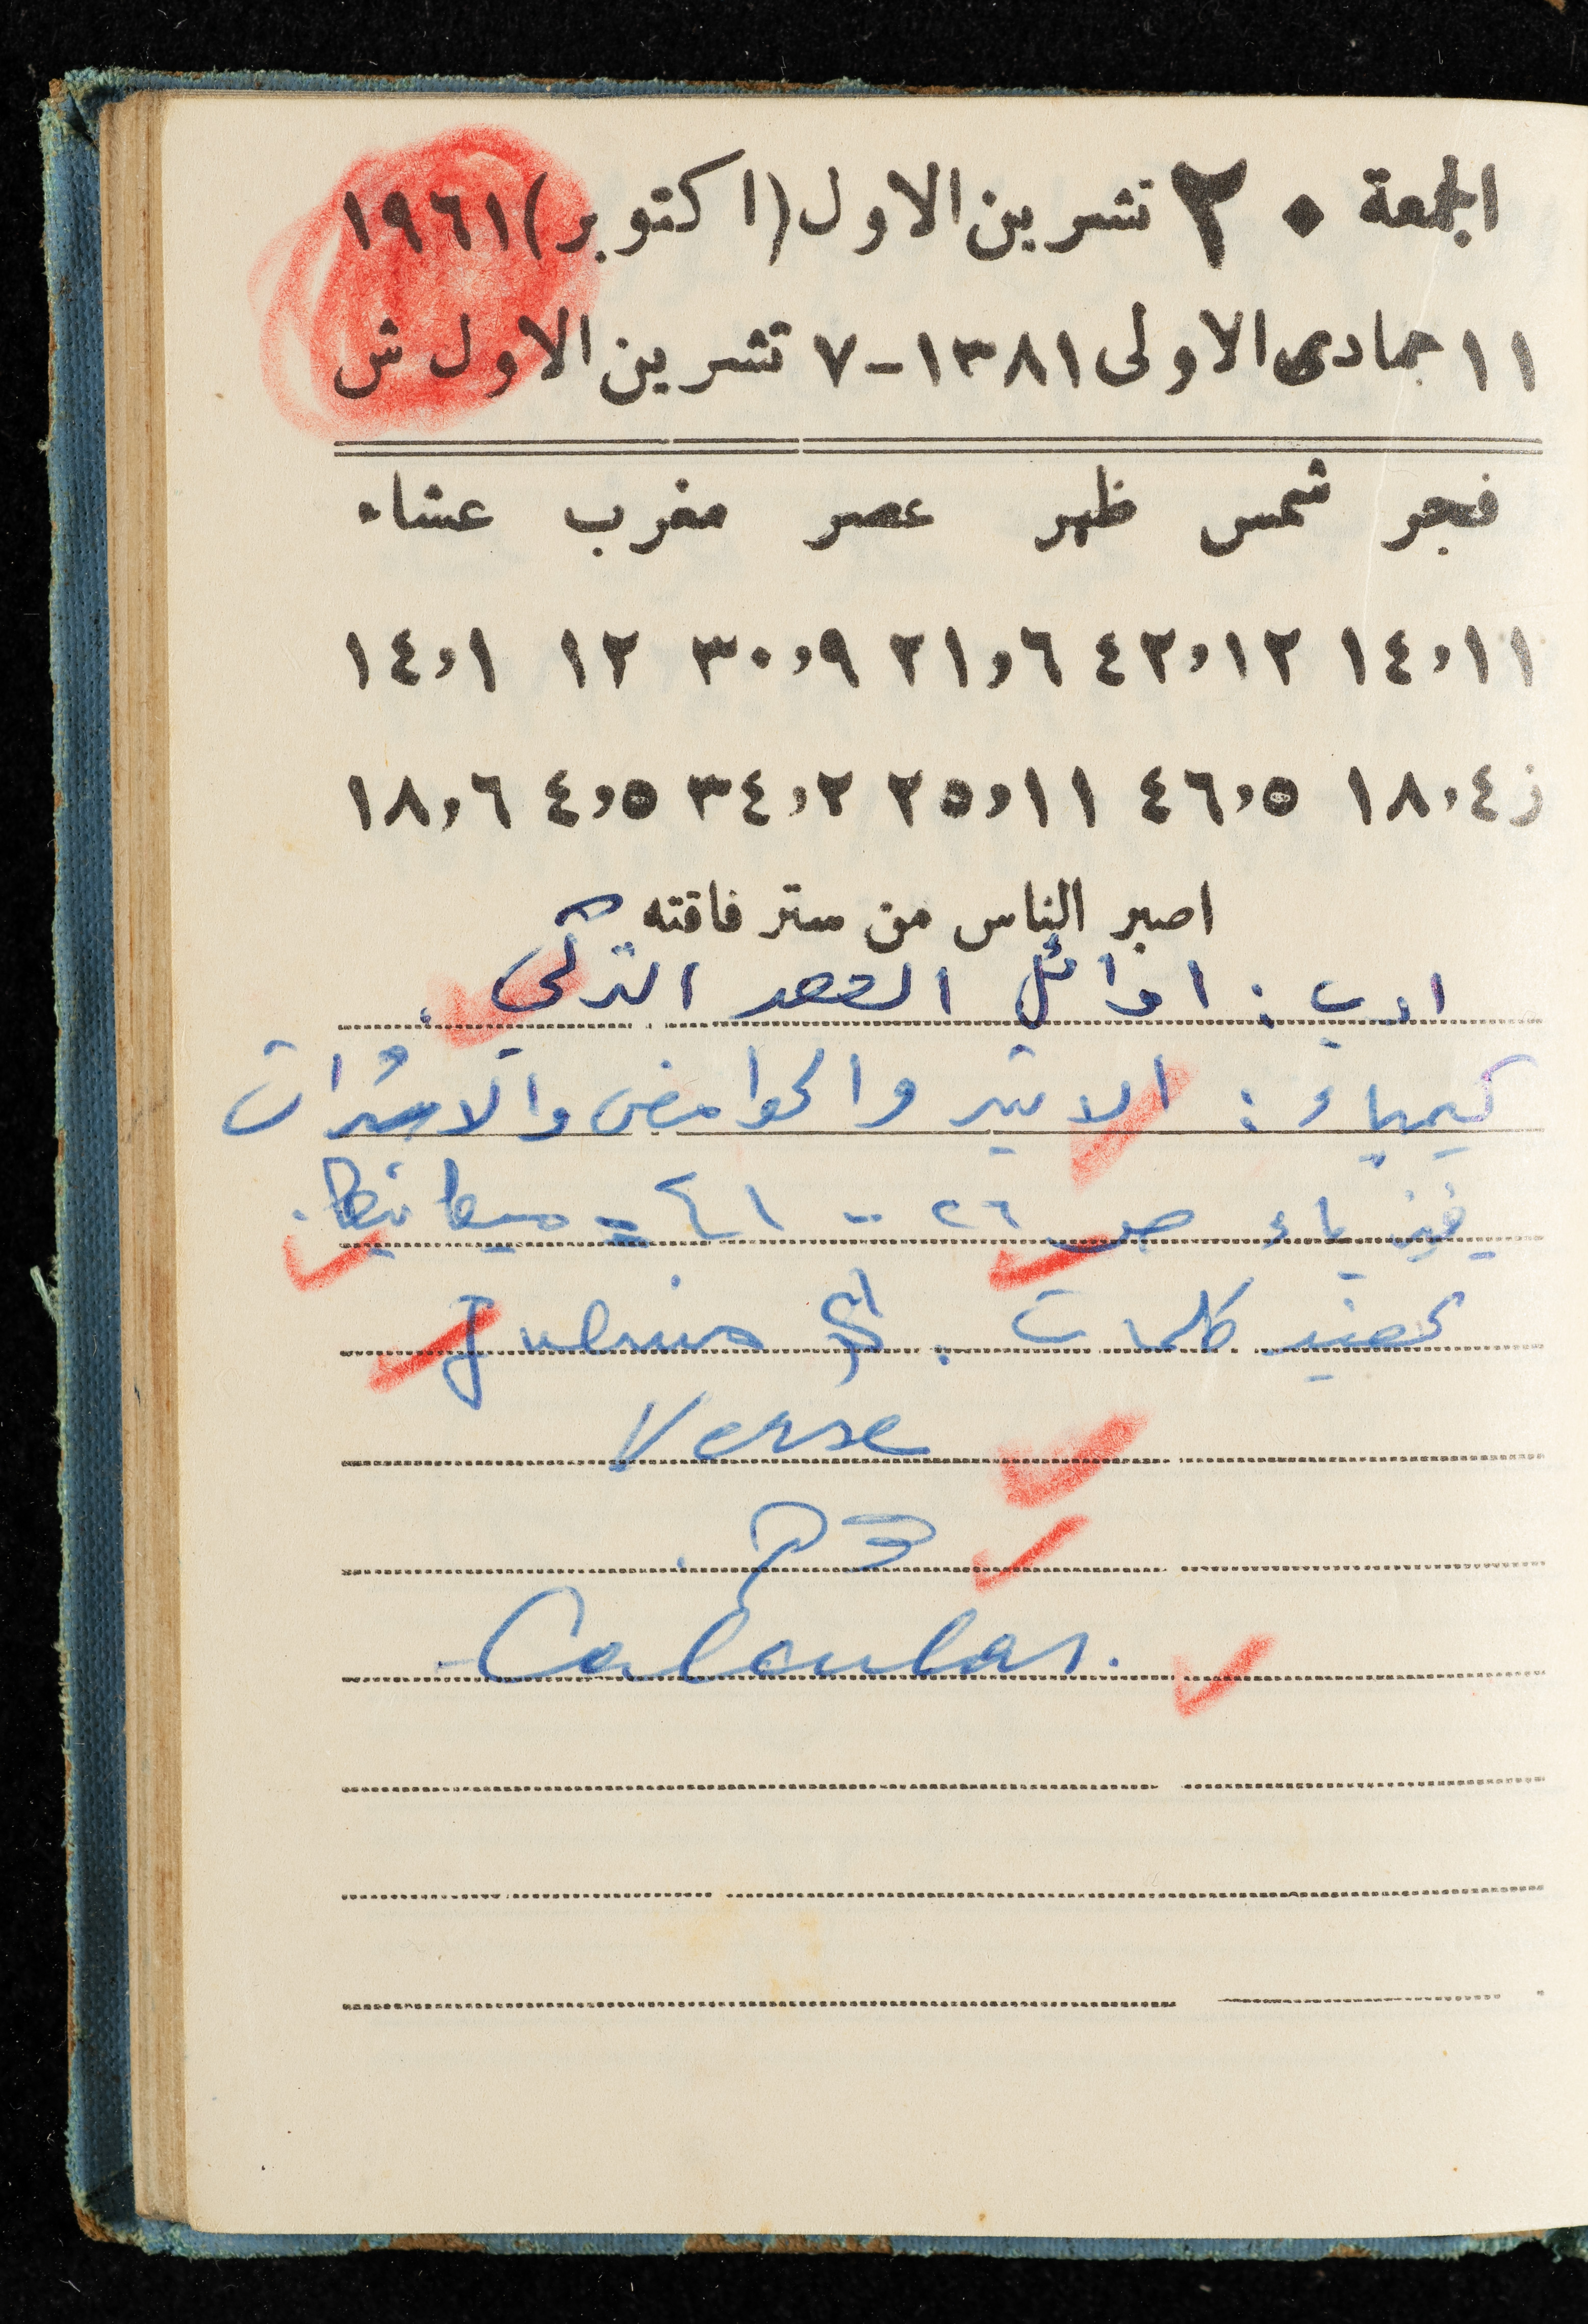 الجمعة ٢٠ تشرين الاول (اكتوبر) ١٩٦١
١١ جمادى الاولى ١٣٨١ - ٧ تشرين الاول ش
فجر شمس ظهر عصر مغرب عشاء
١٤،١١ ٤٢،١٢ ٢١،٦ ٣٠،٩ ١٢ ١٤،١
ز ١٨،٤ ٤٦،٥ ٢٥،١١ ٣٤،٢ ٤،٥ ١٨،٦
اصبر الناس من ستر فاقته
ادب : اوائل العصر التركي .
كيمياء : الايثر والحوامض والاسترات
فيزياء ص ٢٦ - ٤١ = ميكانيكا .
تحضير كلمات . Julius
Verse
Calculas .